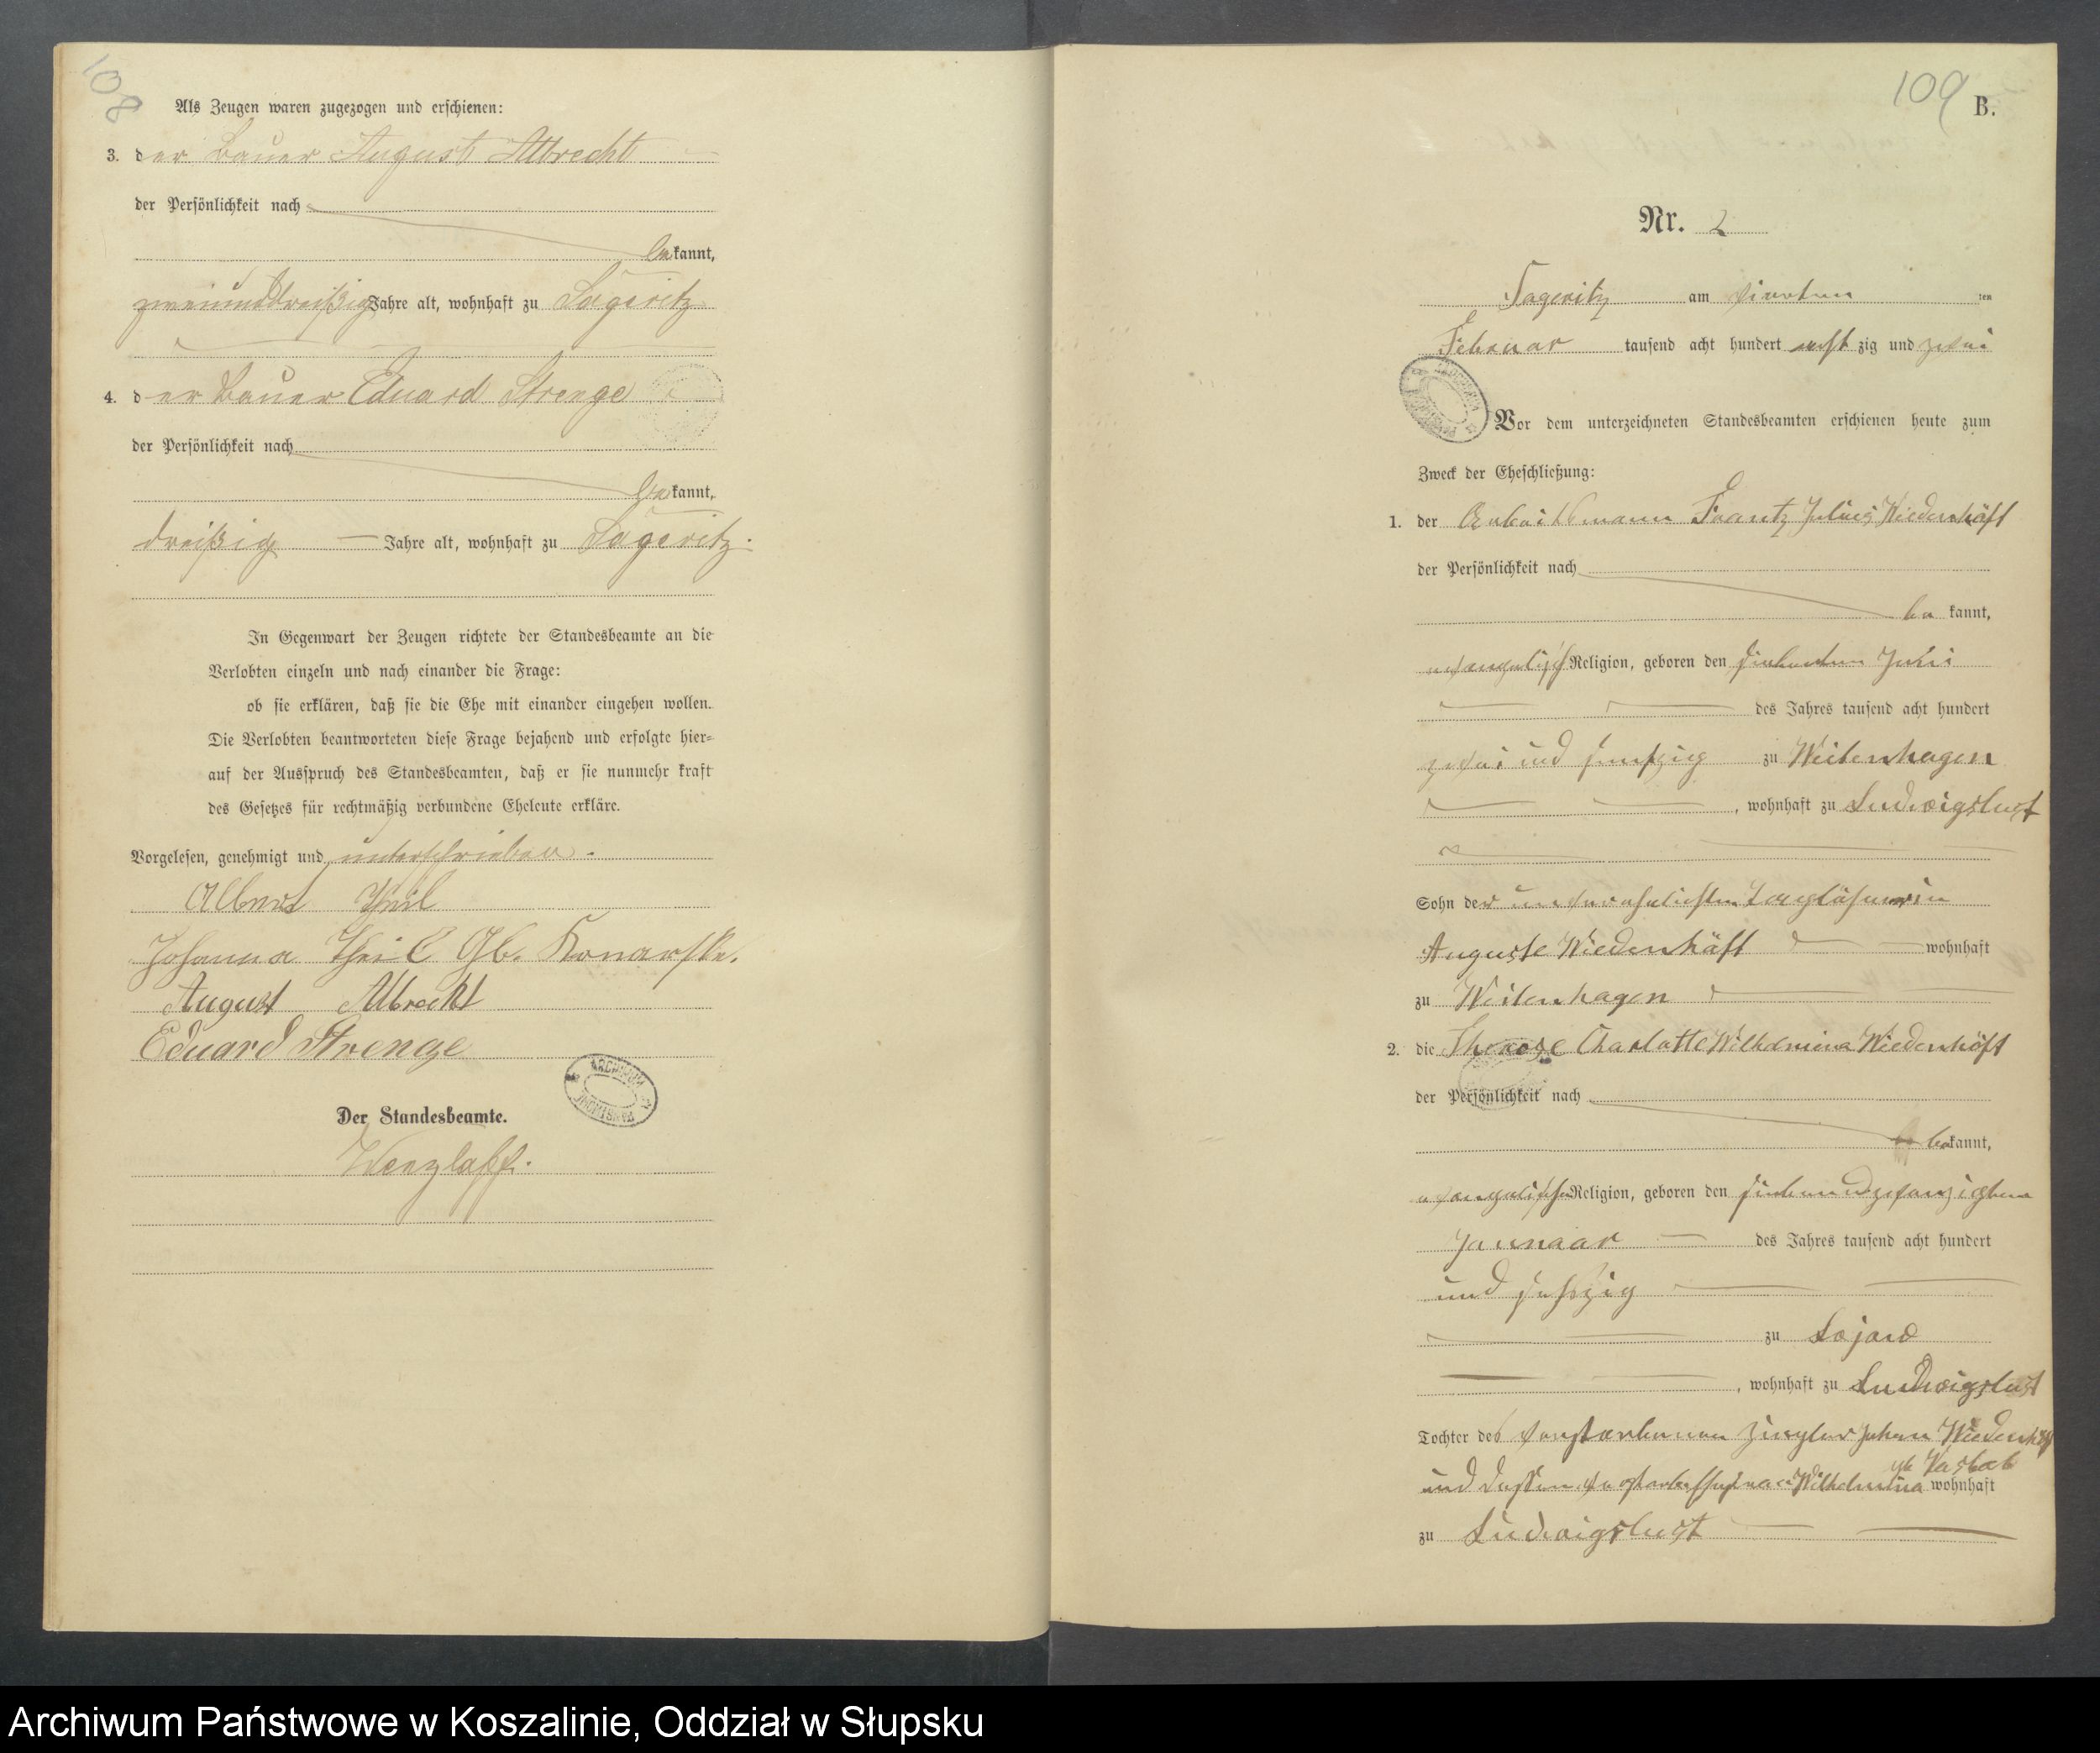 108
Als Zeugen waren zugezogen und erschienen:
3. der Bauer August Albrecht
der Persönlichkeit nach
bekannt,
zweiunddreißig Jahre alt, wohnhaft zu Sageritz
4. der Bauer Eduard Strenge
der Persönlichkeit nach
bekannt,
dreißig Jahre alt, wohnhaft zu Sageritz.
In Gegenwart der Zeugen richtete der Standesbeamte an die
Verlobten einzeln und nach einander die Frage:
ob sie erklären, daß sie die Ehe mit einander eingehen wollen.
Die Verlobten beantworteten diese Frage bejahend und erfolgte hier-
auf der Ausspruch des Standesbeamten, daß er sie nunmehr kraft
des Gesetzes für rechtmäßig verbundene Eheleute erkläre.
Vorgelesen, genehmigt und unterschrieben.
Albert
Johanna Theil Gb.
August Albrecht
Eduard Strenge
Der Standesbeamte.
109
B.
Nr. 2
Sageritz am vierten ten
Februar tausend acht hundert achtzig und zwei
Vor dem unterzeichneten Standesbeamten erschienen heute zum
Zweck der Eheschließung:
1. der Arbeitsmann Frantz Julius Wiedenhäft
der Persönlichkeit nach
bekannt,
evangelisch Religion, geboren den siebenten
des Jahres tausend acht hundert
zwei und funfzig zu Weitenhagen
, wohnhaft zu Ludwigslust
Sohn der unverehelichten Taglöhnerin
Auguste Wiedenhäft wohnhaft
zu Weitenhagen
2. die Therese Charlotte Wilhelmine Wiedenhöft
der Persönlichkeit nach
bekannt,
evangelischen Religion, geboren den siebenundzwanzigsten
Januaar des Jahres tausend acht hundert
und sechzig
zu Lojow
, wohnhaft zu Ludwigslust
Tochter des verstorbenen Ziegler Johann
gb
und dessen Wilhelmina wohnhaft
zu Ludwigslust
Archiwum Państwowe w Koszalinie, Oddział w Słupsku